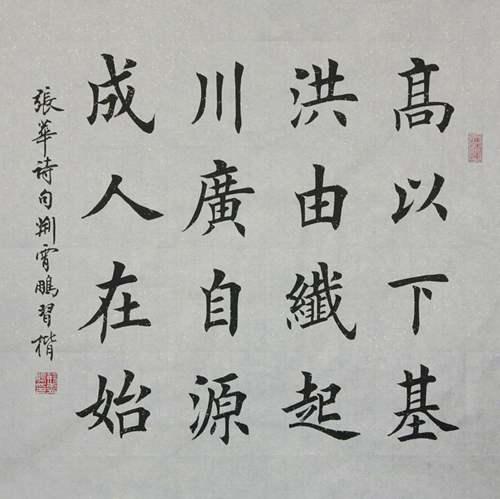 高以下基
洪由纖起
川廣自源
成人在始
張華诗句荆霄鵬習楷